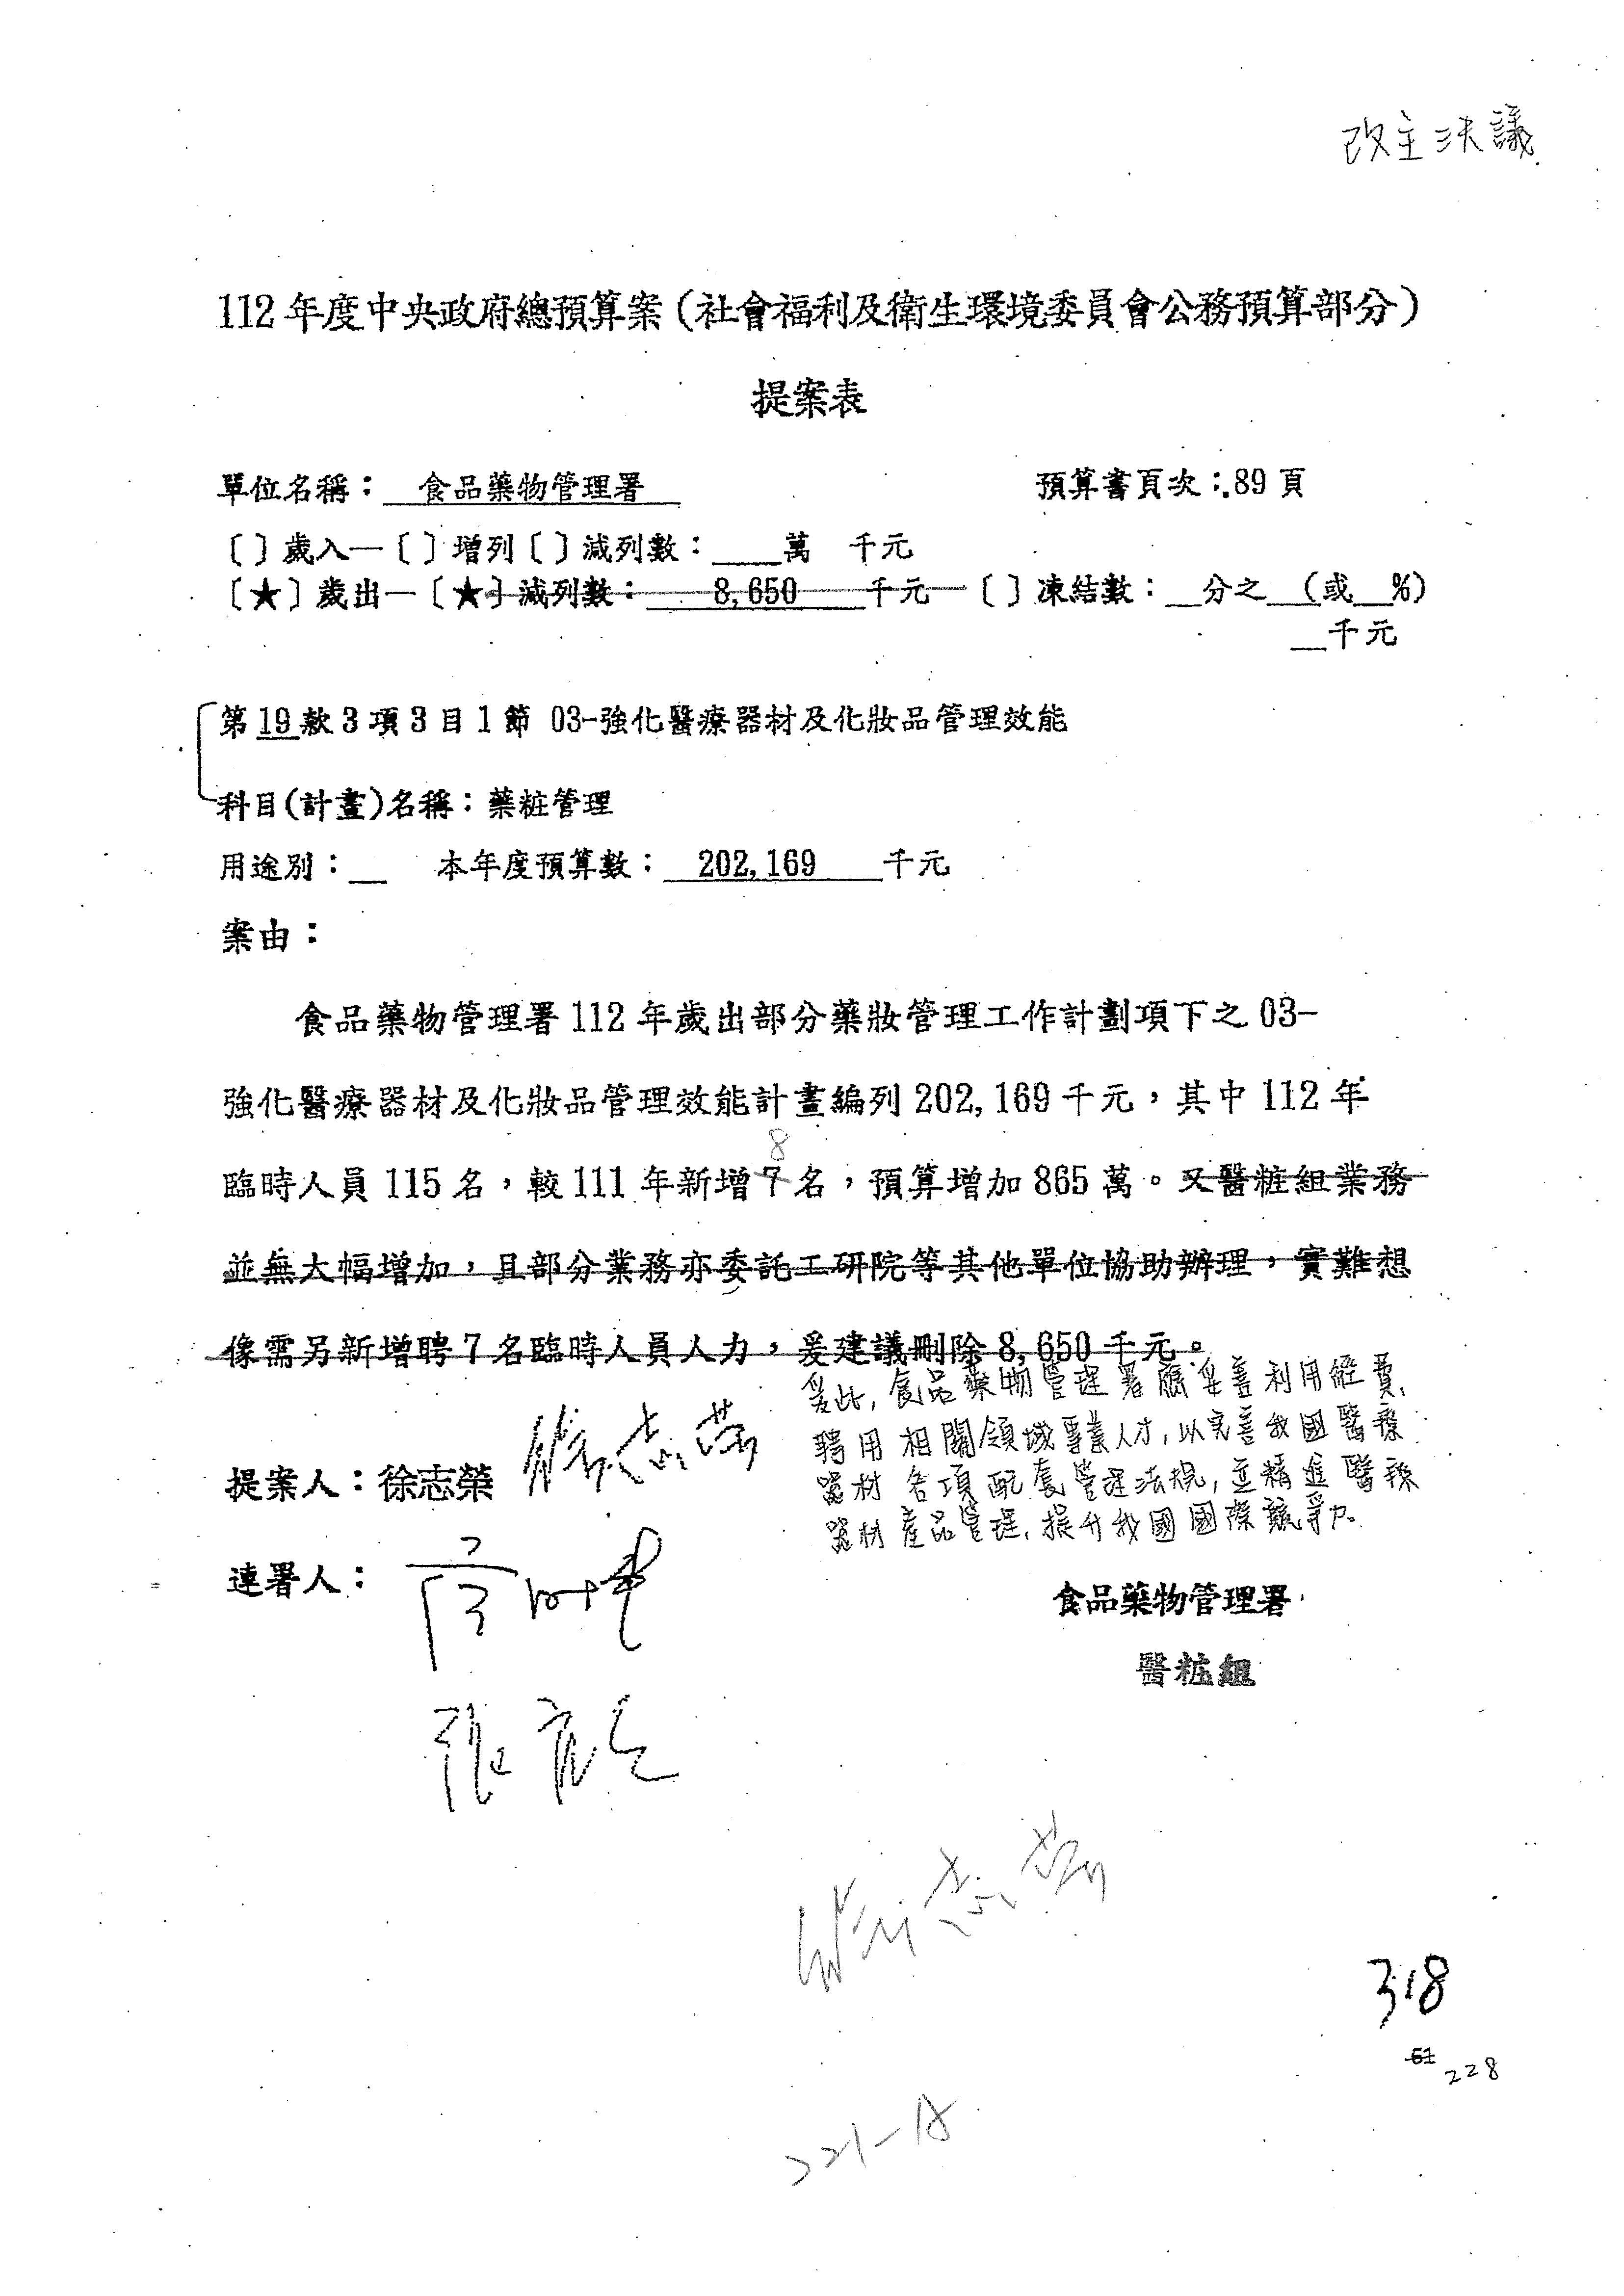 改主決議
112年度中央政府總預算案(社會福利及衛生環境委員會公務預算部分)
提案表
單位名稱：食品藥物管理署 預算書頁次：89頁
〔〕歲入—〔〕增列〔〕減列數：____萬 千元
〔★〕歲出—〔★〕減列數：8,650千元 〔〕凍結數：__分之__(或__%)
__千元
第19款3項3目1節 03-強化醫療器材及化妝品管理效能
科目(計畫)名稱：藥粧管理
用途別：__ 本年度預算數：202,169千元
案由：
食品藥物管理署112年歲出部分藥妝管理工作計劃項下之03-
強化醫療器材及化妝品管理效能計畫編列202,169千元，其中112年
8
臨時人員115名，較111年新增7名，預算增加865萬。又醫粧組業務
並無大幅增加，且部分業務亦委託工研院等其他單位協助辦理，實難想
像需另新增聘7名臨時人員人力，爰建議刪除8,650千元。
爰此,食品藥物管理署應妥善利用經費,
聘用相關領域專業人才,以完善我國醫療
器材各項配套管理法規,並精進醫療
器材產品管理,提升我國國際競爭力。
提案人：徐志榮 徐志榮
連署人：
食品藥物管理署
醫粧組
徐志榮
318
61
228
221-18